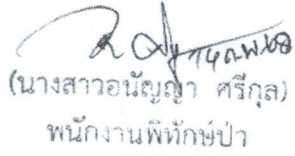 14 ก.พ. 68
(นางสาวอนัญญา ศรีกุล)
พนักงานพิทักษ์ป่า